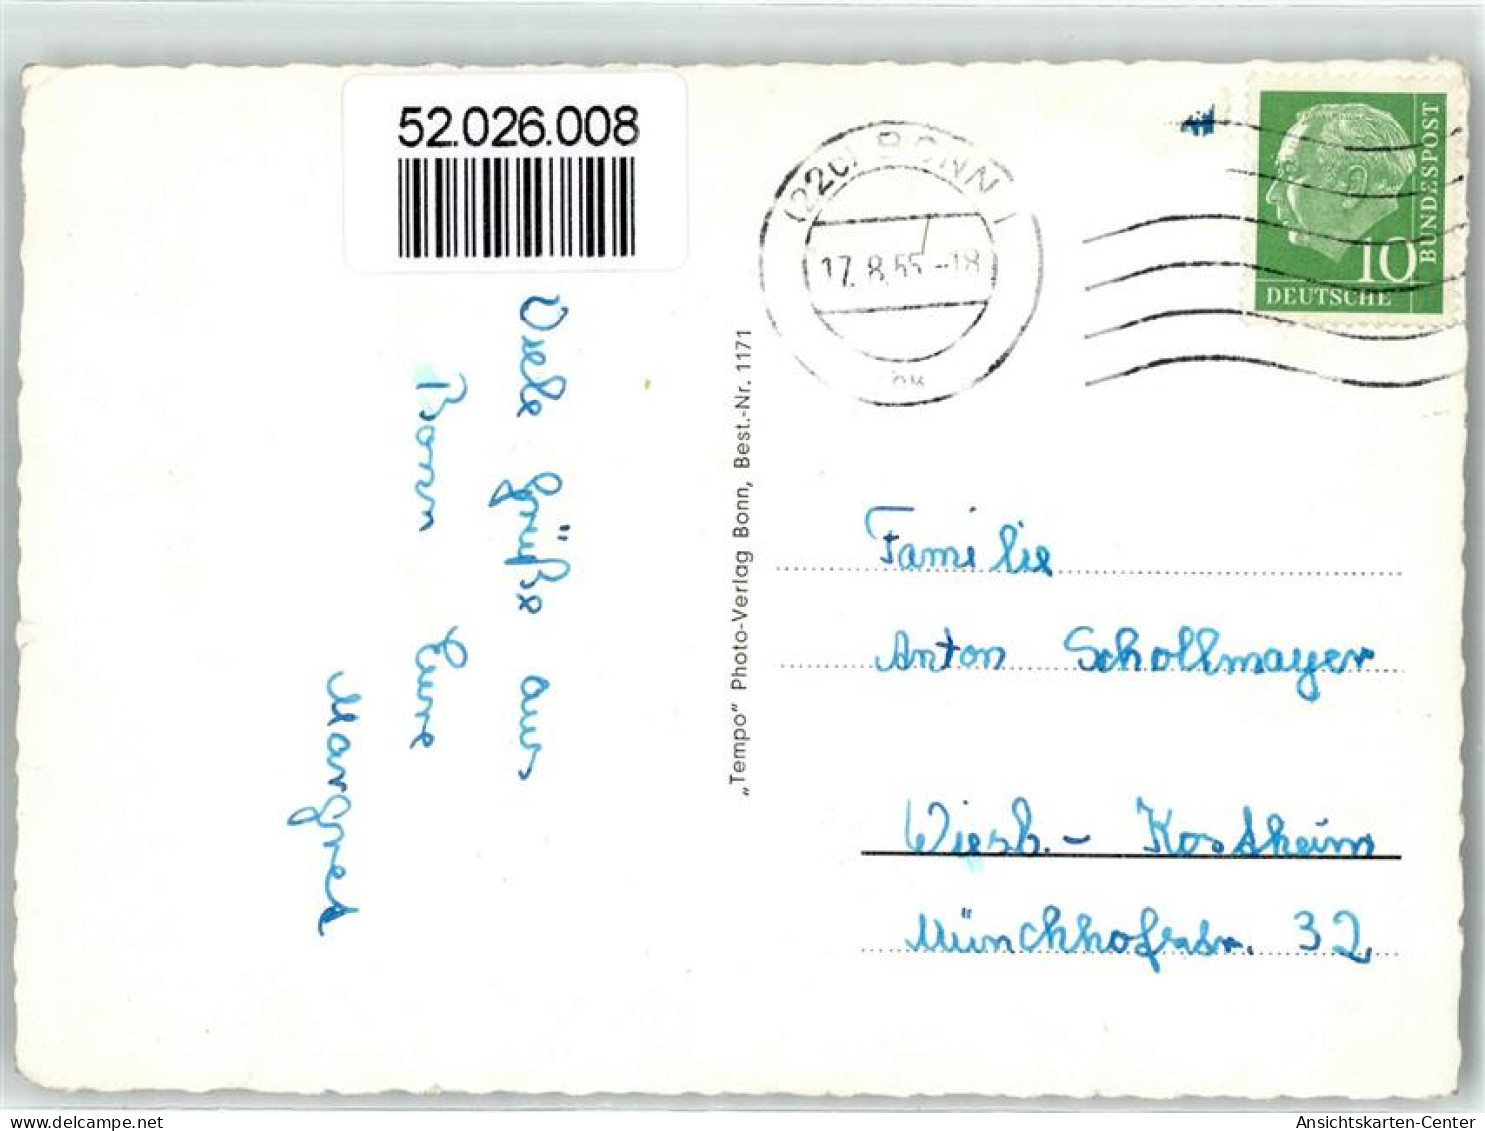 52.026.008
(22c) BONN 1
17.8.55.-18
BUNDESPOST
10
DEUTSCHE
Viele Grüße aus
Bonn Eure
Margred
„Tempo" Photo-Verlag Bonn, Best.-Nr. 1171
Familie
Anton Schollmayer
Wiesb.- Kostheim
Münchhofstr. 32
Ansichtskarten-Center